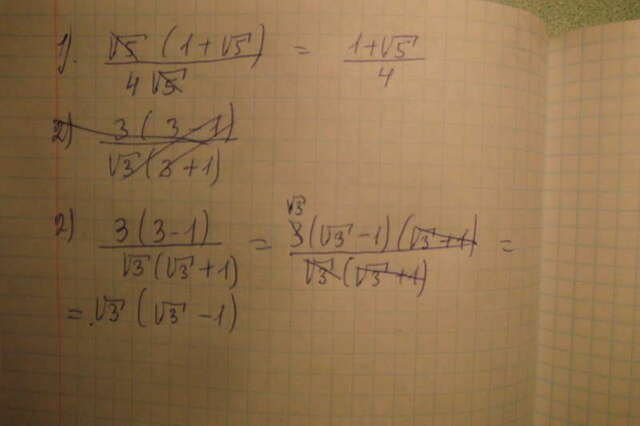 1). √5 (1 + √5) / 4√5 = 1+√5 / 4
2) 3(3-1) / √3(3+1)
2) 3(3-1) / √3(√3+1) = √3 3(√3-1)(√3+1) / √3(√3+1) =
= √3(√3-1)